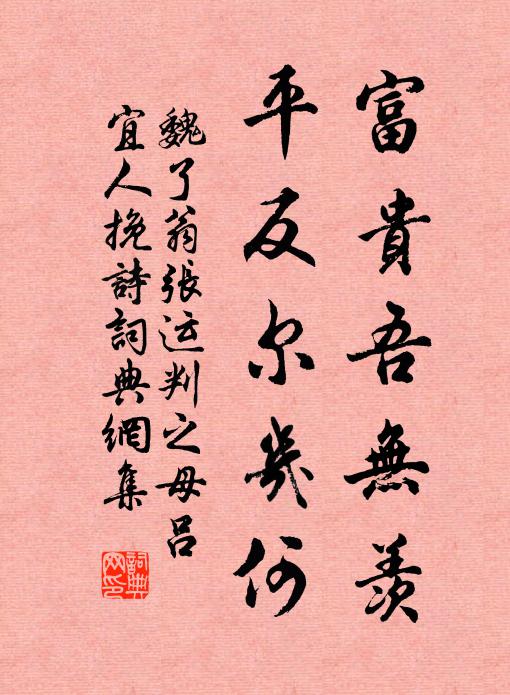 富貴吾無羨
平反尔幾何
魏了翁張运判之母呂
宜人挽詩詞典網集
詞典网印